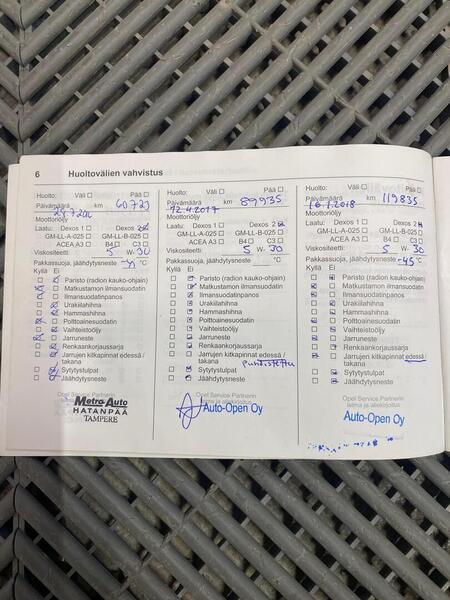 6 Huoltovälien vahvistus
Huolto: Väli ☐ Pää ☐
Päivämäärä km 60723
Moottoriöljy
Laatu: Dexos 1 ☐ Dexos 2
GM-LL-A-025 ☐ GM-LL-B-025 ☐
ACEA A3 ☐ B4 ☐ C3 ☐
Viskositeetti 5 W- 30
Pakkassuoja, jäähdytysneste °C
Kyllä Ei
Paristo (radion kauko-ohjain)
Matkustamon ilmansuodatin
Ilmansuodatinpanos
Urakiilahihna
Hammashihna
Polttoainesuodatin
Vaihteistoöljy
Jarruneste
Renkaankorjaussarja
Jarrujen kitkapinnat edessä /
takana
Sytytystulpat
Jäähdytysneste
Opel Service Partnerin
Metro Auto
HATANPÄÄ
TAMPERE
Huolto: Väli ☐ Pää ☐
Päivämäärä km 89935
12.4.2017
Moottoriöljy
Laatu: Dexos 1 ☐ Dexos 2
GM-LL-A-025 ☐ GM-LL-B-025 ☐
ACEA A3 ☐ B4 ☐ C3 ☐
Viskositeetti 5 W- 30
Pakkassuoja, jäähdytysneste °C
Kyllä Ei
Paristo (radion kauko-ohjain)
Matkustamon ilmansuodatin
Ilmansuodatinpanos
Urakiilahihna
Hammashihna
Polttoainesuodatin
Vaihteistoöljy
Jarruneste
Renkaankorjaussarja
Jarrujen kitkapinnat edessä /
takana puhdistettu
Sytytystulpat
Jäähdytysneste
Opel Service Partnerin
leima ja allekirjoitus
Auto-Open Oy
Huolto: Väli ☐ Pää ☐
Päivämäärä km 119835
16.7.2018
Moottoriöljy
Laatu: Dexos 1 ☐ Dexos 2
GM-LL-A-025 ☐ GM-LL-B-025 ☐
ACEA A3 ☐ B4 ☐ C3 ☐
Viskositeetti 5 W- 30
Pakkassuoja, jäähdytysneste -45 °C
Kyllä Ei
Paristo (radion kauko-ohjain)
Matkustamon ilmansuodatin
Ilmansuodatinpanos
Urakiilahihna
Hammashihna
Polttoainesuodatin
Vaihteistoöljy
Jarruneste
Renkaankorjaussarja
Jarrujen kitkapinnat edessä /
takana
Sytytystulpat
Jäähdytysneste
Opel Service Partnerin
leima ja allekirjoitus
Auto-Open Oy